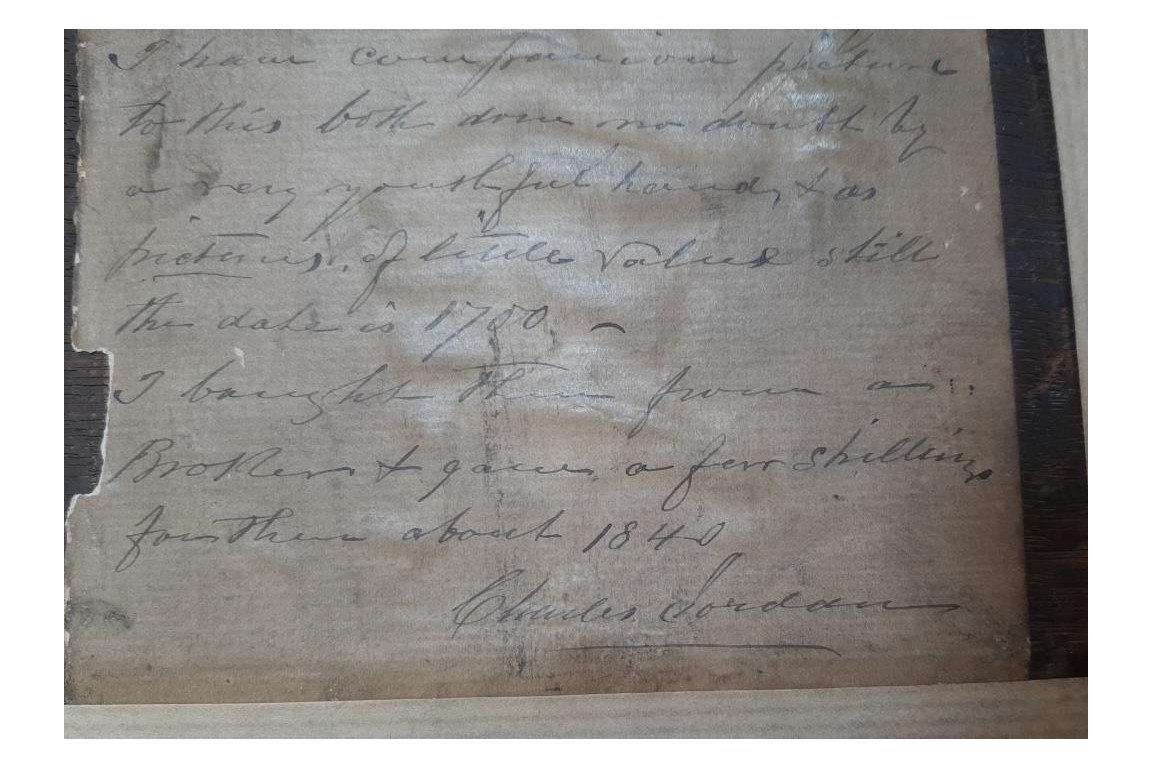 I have companion picture
to this both done no doubt by
a very youthful hand, & as
pictures, of little value still
the date is 1750 –
I bought them from a
Brokers & gave a few shillings
for them about 1840
Charles Jordan